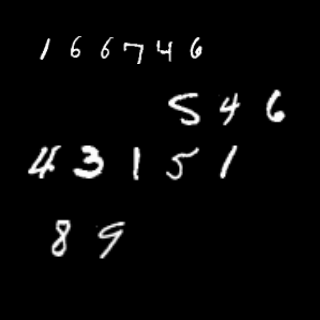 166746
546
43151
89